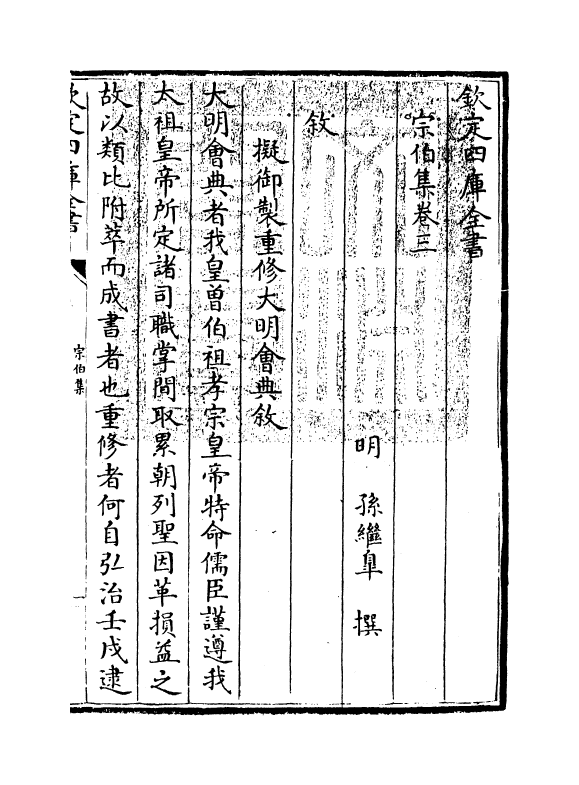 欽定四庫全書
宗伯集卷三
明 孫繼臯 撰
敘
擬御製重修大明會典敘
大明會典者我皇曾伯祖孝宗皇帝特命儒臣謹遵我
太祖皇帝所定諸司職掌間取累朝列聖因革損益之
故以類比附萃而成書者也重修者何自弘治壬戌逮
欽定四庫全書
宗伯集
一